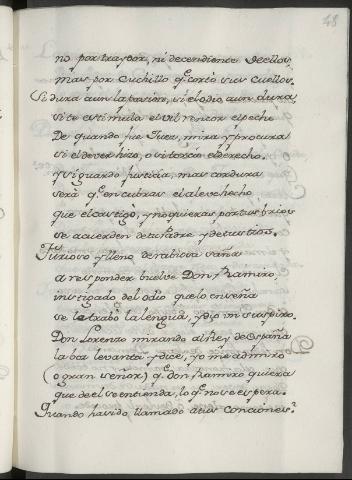 48
no por traydor, ni decendiente dellos,
mas por cuchillo q. cortó sus cuellos.
Si dura aun la pasion, si el odio aun dura,
si te estimula el vil rencor el pecho
De quando fue Juez, mira y procura
si el dever hizo, o si torció el derecho.
y si guardo justicia, mas cordura
será q. encubras el aleve hecho
que el castigó, y no quieras por tus brios
se acuerden de tu Padre y de tus tios.
Furioso y lleno de rabiosa saña
a responder buelve Don Ramiro,
instigado del odio que lo enseña
se le trabó la lengua, y dió un suspiro.
Don Lorenzo mirando al Rey de España
la voz levanta y dice, yo me admiro
(o gran señor) q. don Ramiro quiera
que de el se entienda, lo q. no se espera.
Quando ha sido llamado a tus conciones?